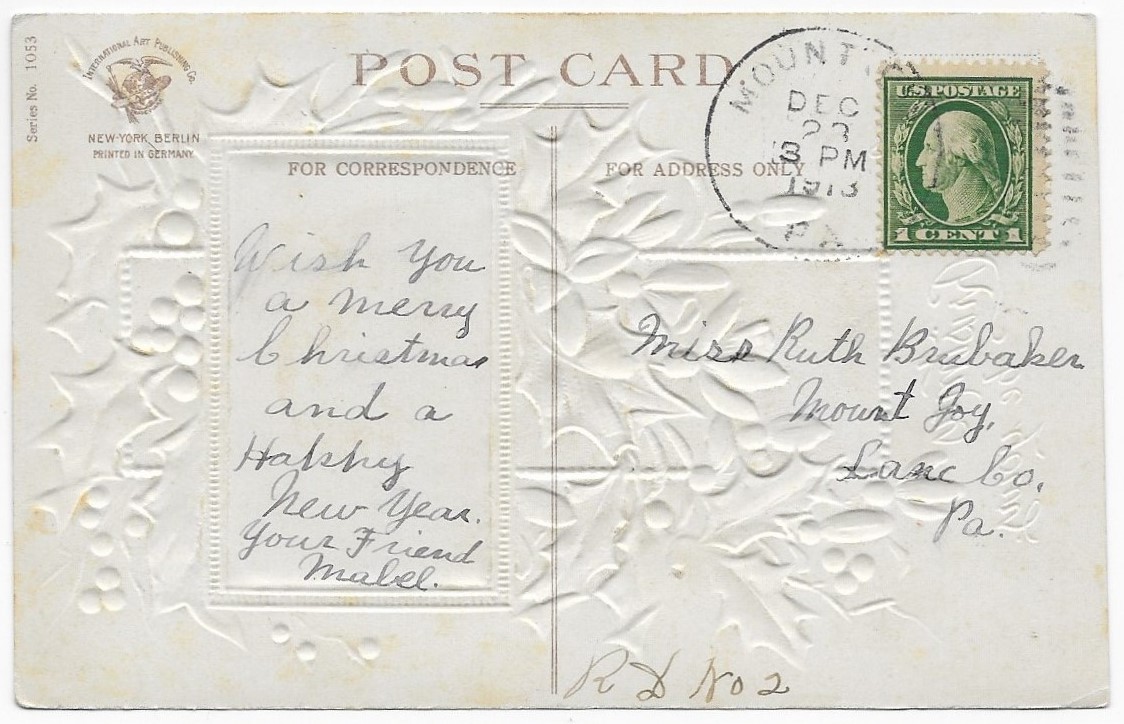 Series No. 1053
INTERNATIONAL ART PUBLISHING CO.
NEW-YORK BERLIN
PRINTED IN GERMANY
POST CARD
FOR CORRESPONDENCE
FOR ADDRESS ONLY
MOUNT
DEC
23
3 PM
1913
PA
U.S. POSTAGE
1 CENT 1
Wish You
a merry
Christmas
and a
Happy
New Year.
Your Friend
Mabel.
Miss Ruth Brubaker
Mount Joy,
Lanc Co.
Pa.
R D No 2